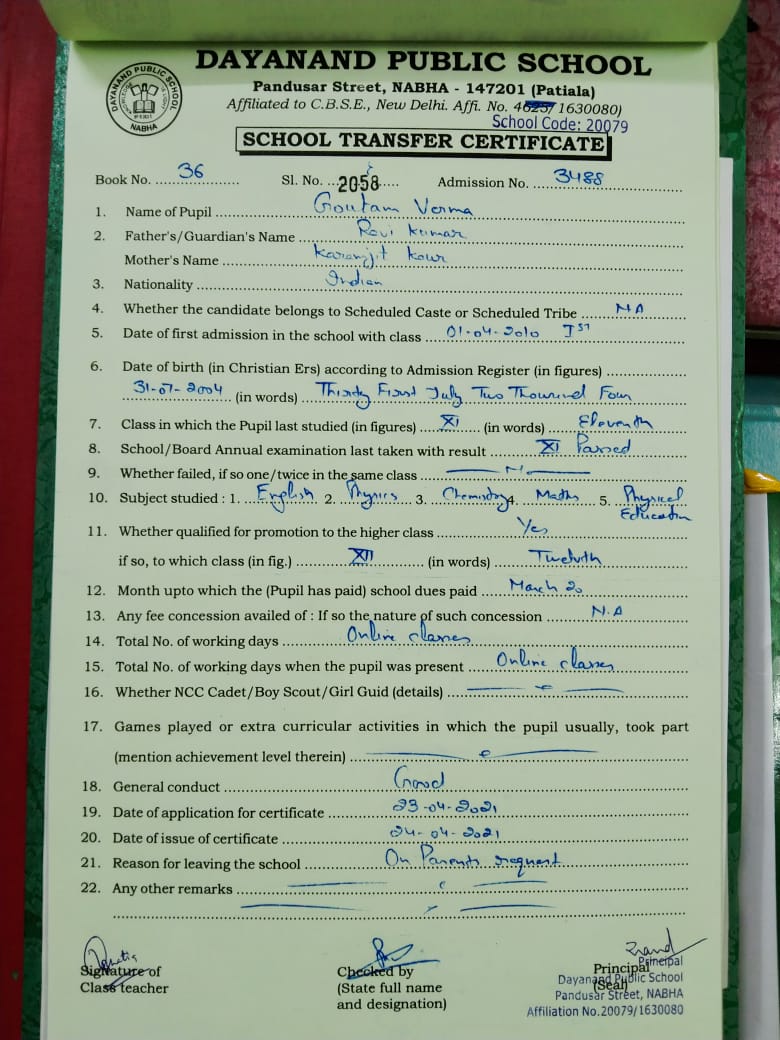 DAYANAND PUBLIC SCHOOL
DAYANAND PUBLIC SCHOOL
NABHA
Pandusar Street, NABHA - 147201 (Patiala)
Affiliated to C.B.S.E., New Delhi. Affi. No. 4625/ 1630080)
School Code: 20079
SCHOOL TRANSFER CERTIFICATE
Book No. 36 Sl. No. 2058 Admission No. 3488
1. Name of Pupil Goutam Verma
2. Father's/Guardian's Name Ravi Kumar
Mother's Name Karamjit Kour
3. Nationality Indian
4. Whether the candidate belongs to Scheduled Caste or Scheduled Tribe NA
5. Date of first admission in the school with class 01-04-2010 Ist
6. Date of birth (in Christian Ers) according to Admission Register (in figures)
31-07-2004 (in words) Thirty First July Two Thousand Four
7. Class in which the Pupil last studied (in figures) XI (in words) Eleventh
8. School/Board Annual examination last taken with result XI Passed
9. Whether failed, if so one/twice in the same class
10. Subject studied : 1. English 2. Physics 3. Chemistry 4. Maths 5. Physical Education
11. Whether qualified for promotion to the higher class Yes
if so, to which class (in fig.) XII (in words) Twelvth
12. Month upto which the (Pupil has paid) school dues paid March 20
13. Any fee concession availed of : If so the nature of such concession N.A
14. Total No. of working days Online classes
15. Total No. of working days when the pupil was present Online classes
16. Whether NCC Cadet/Boy Scout/Girl Guid (details)
17. Games played or extra curricular activities in which the pupil usually, took part
(mention achievement level therein)
18. General conduct Good
19. Date of application for certificate 23-04-2021
20. Date of issue of certificate 24-04-2021
21. Reason for leaving the school On Parents request
22. Any other remarks
Signature of
Class teacher
Checked by
(State full name
and designation)
Principal
(Seal)
Principal
Dayanand Public School
Pandusar Street, NABHA
Affiliation No.20079/1630080